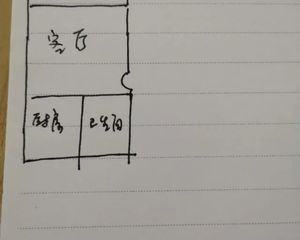 客厅
厨房
卫生间